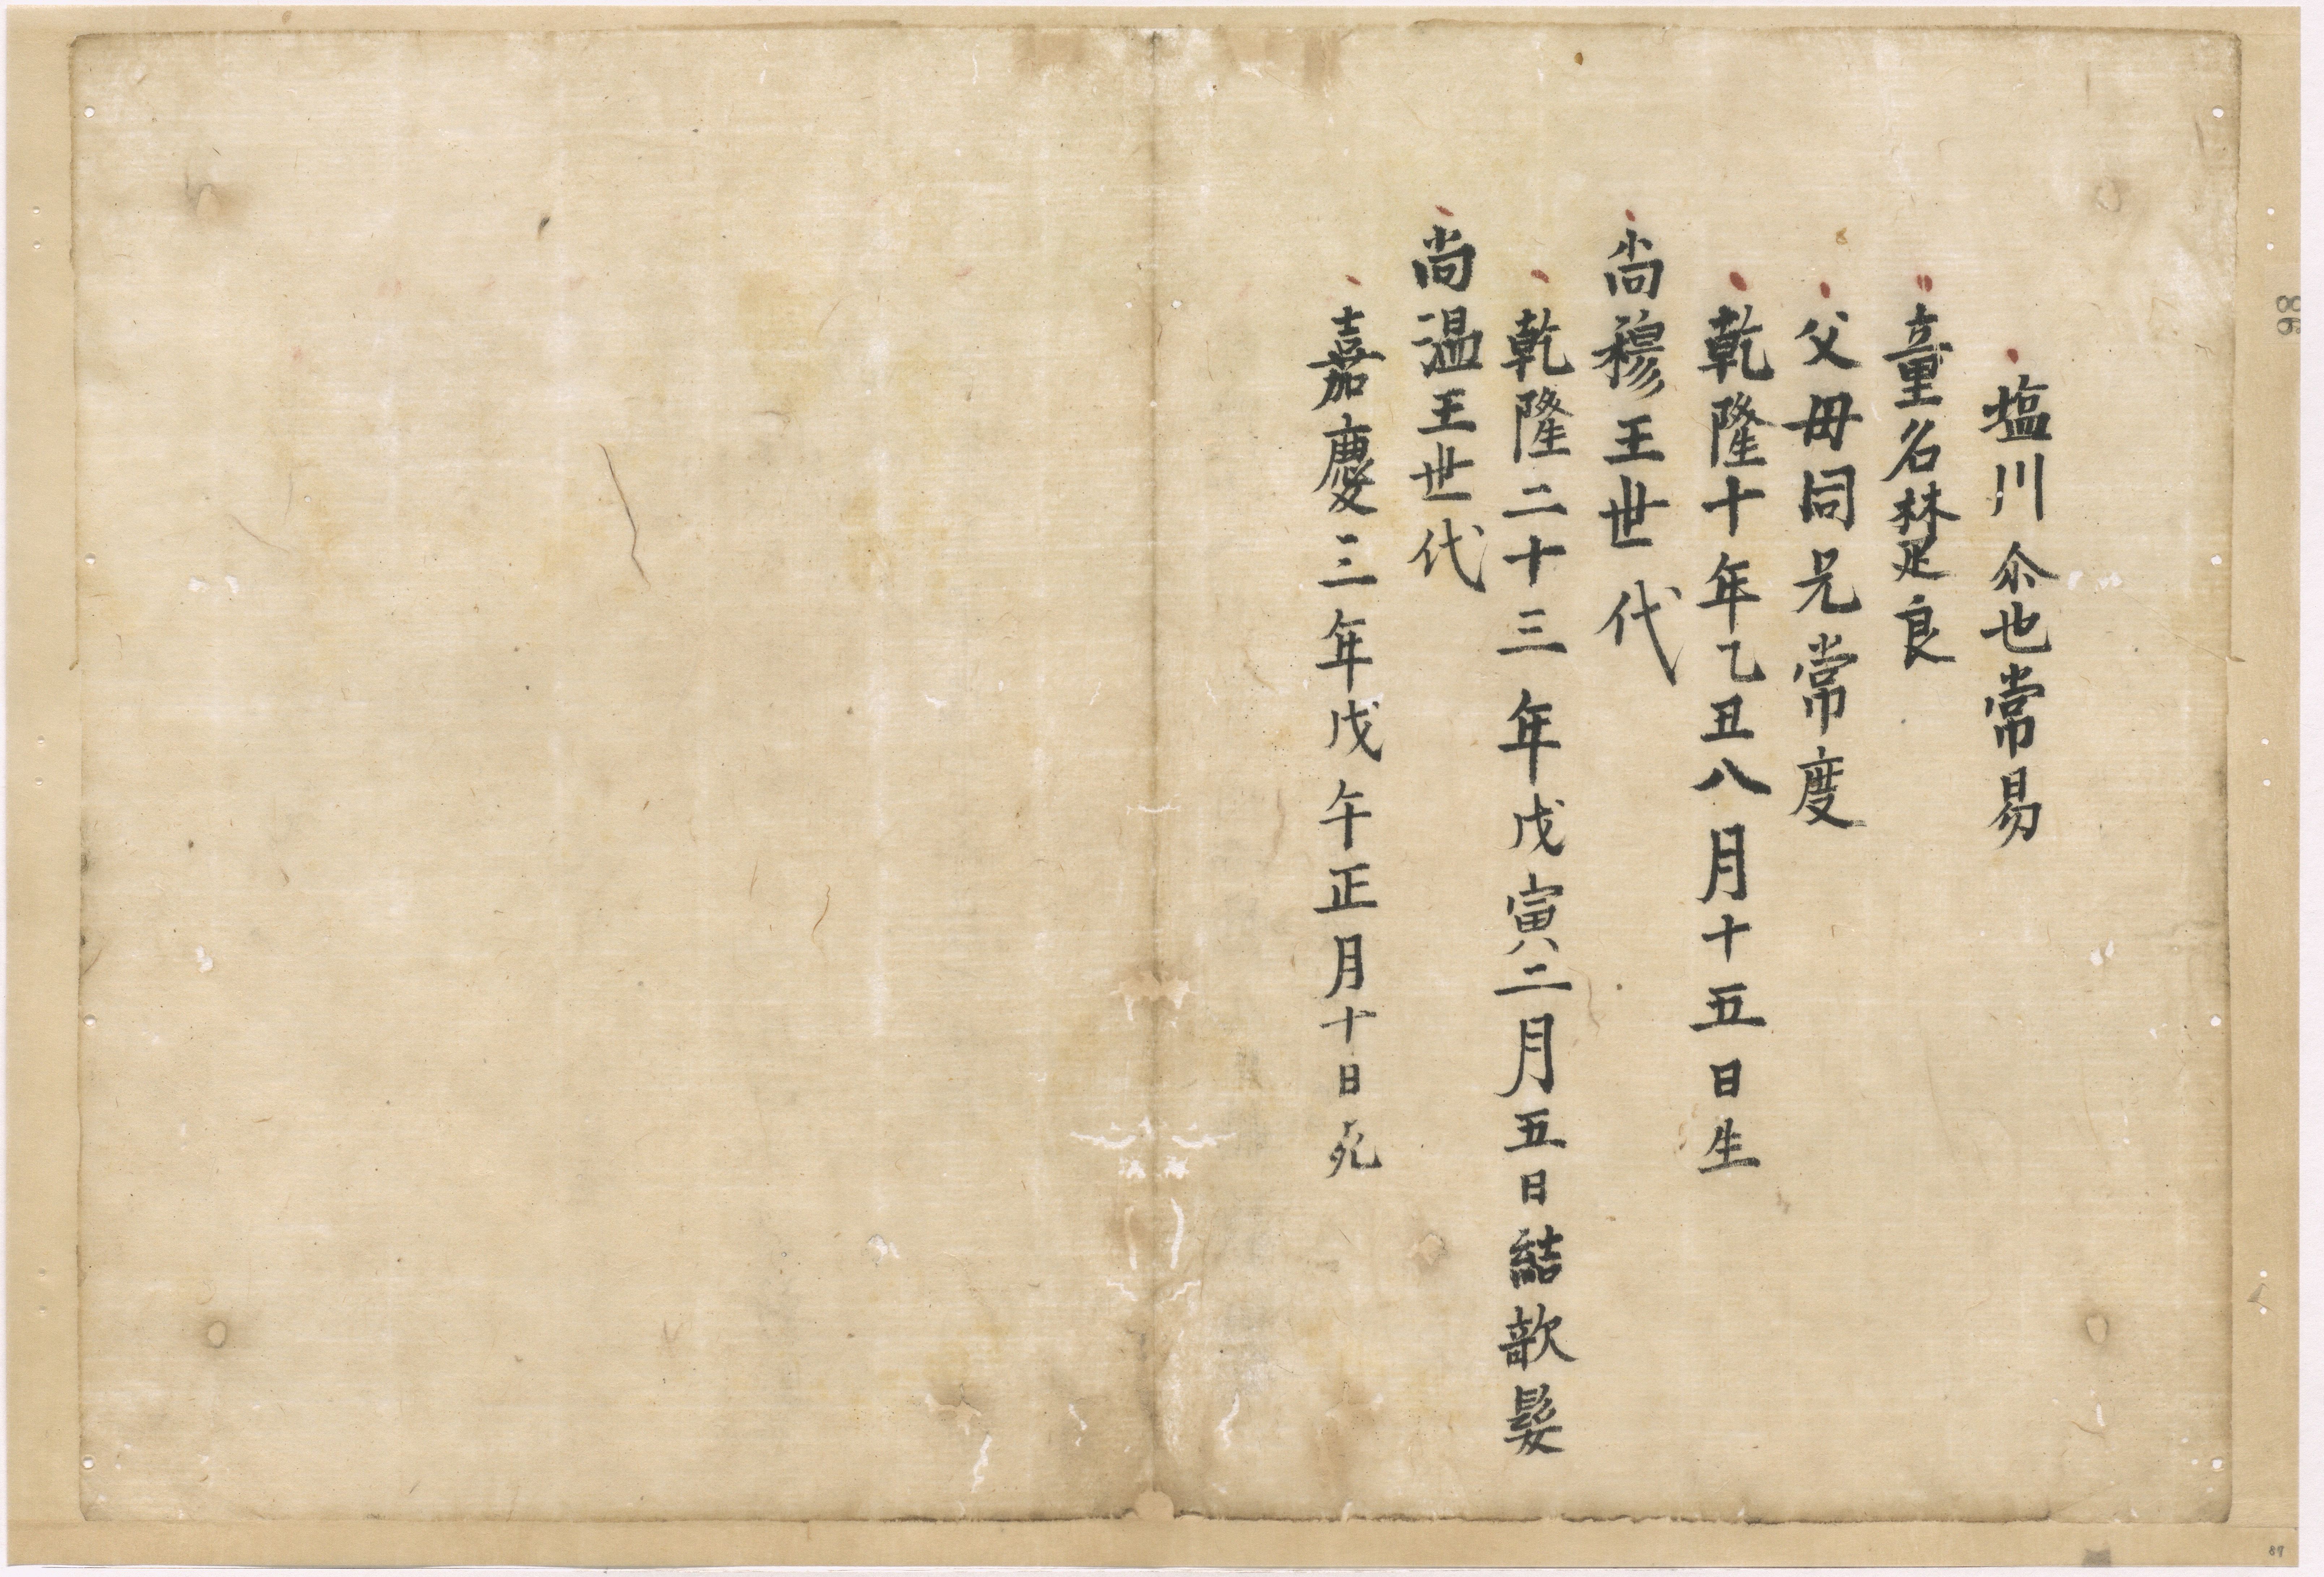 塩川尒也常易
童名楚良
父母同兄常度
乾隆十年乙丑八月十五日生
尚穆王世代
乾隆二十三年戊寅二月五日結欹髪
尚温王世代
嘉慶三年戊午正月十日死
86
87